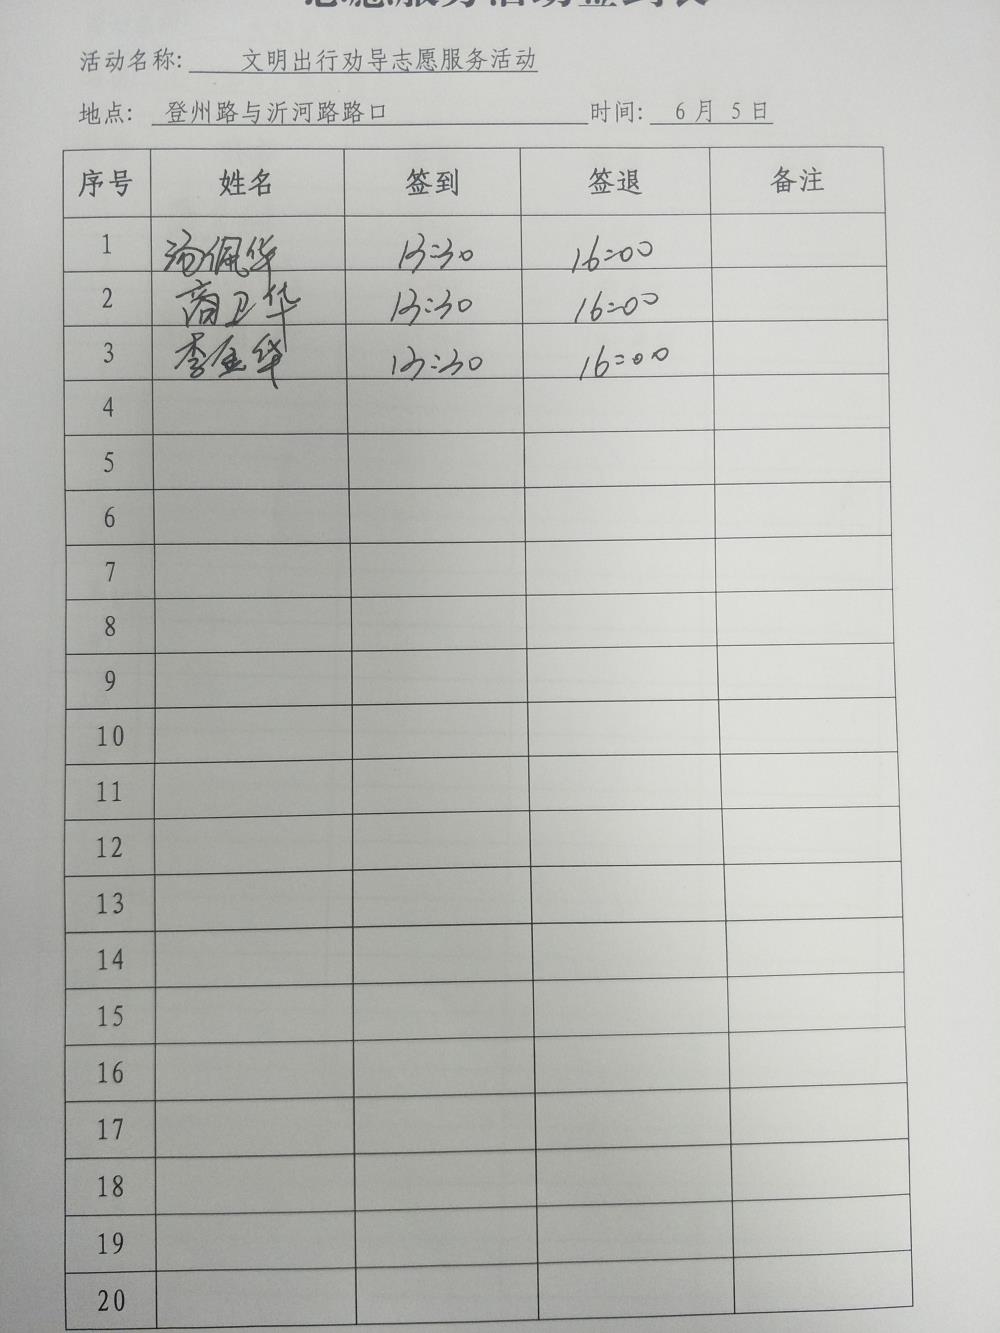 志愿服务活动签到表
活动名称: 文明出行劝导志愿服务活动
地点: 登州路与沂河路路口 时间: 6月 5日
序号 姓名 签到 签退 备注
1 汤佩华 13:30 16:00
2 商卫华 13:30 16:00
3 李金华 13:30 16:00
4
5
6
7
8
9
10
11
12
13
14
15
16
17
18
19
20